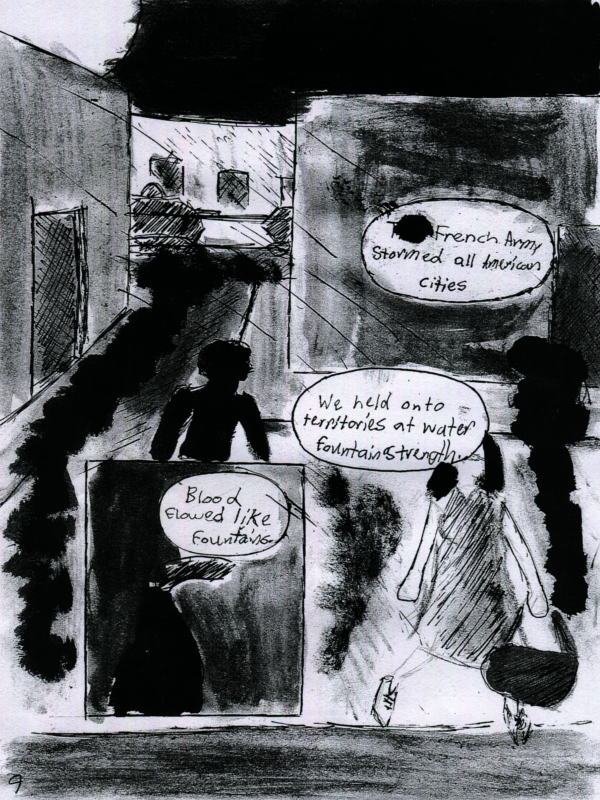 French Army
Stormed all American
cities
We held onto
territories at water
fountain strength
Blood
Flowed like
Fountains
9